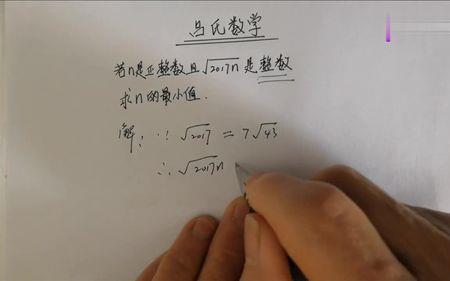 吕氏数学
若n是正整数且√2017n是整数
求n的最小值.
解:∵√2017=7√43
∴√2017n